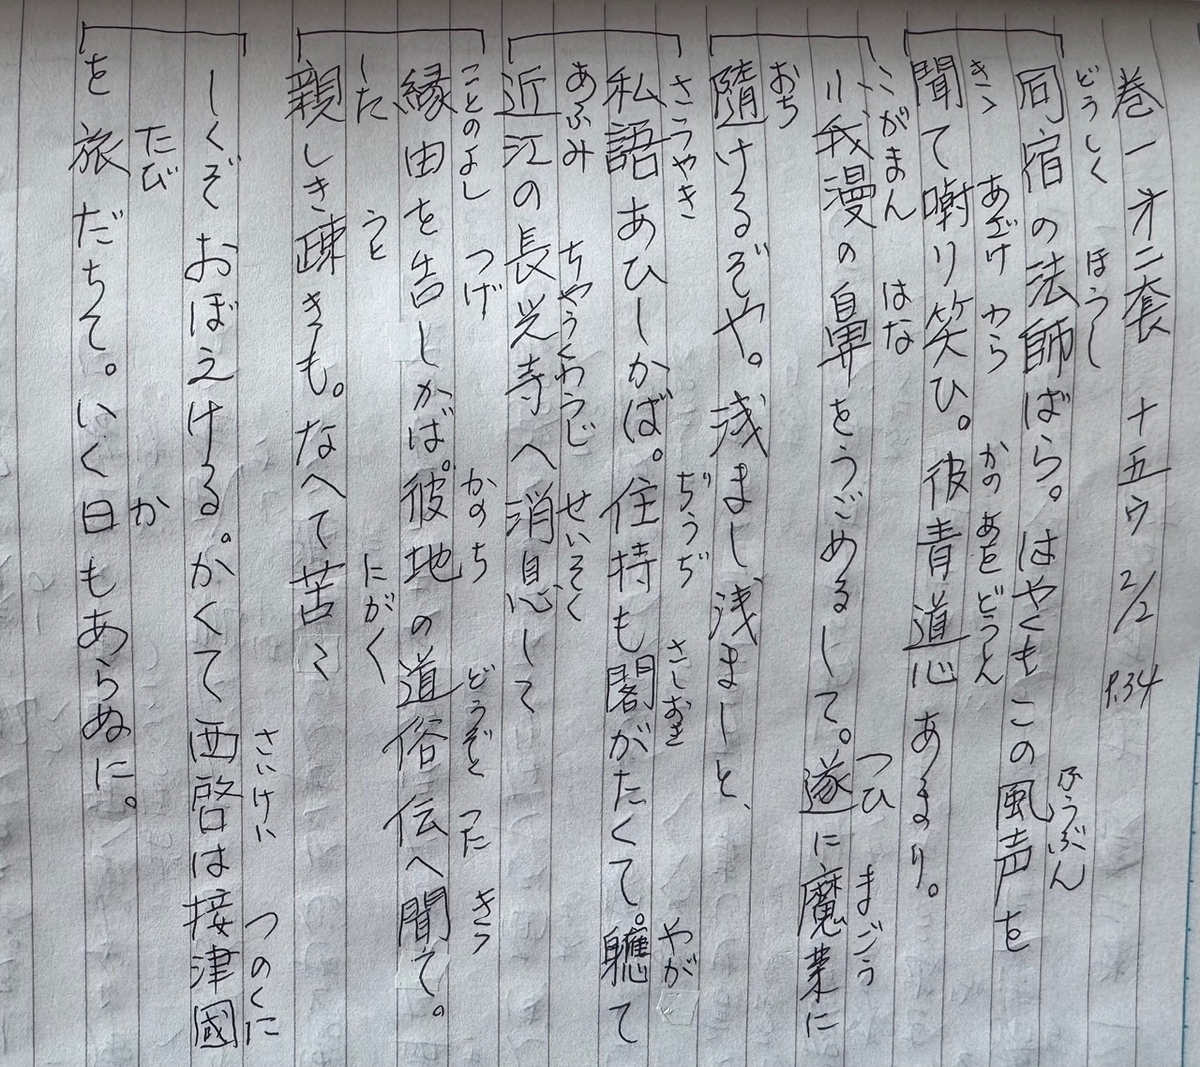 巻一 才二套 十五ウ 2/2 P.34
どうしく ほうし ふうぶん
同宿の法師ばら。はやくもこの風声を
きゝ あざけ わら かの あをどうしん
聞て嘲り笑ひ。彼青道心あまり。
こがまん はな つひ まごう
小我漫の鼻をうごめるして。遂に魔業に
おち
隨けるぞや。浅まし浅ましと、
さゝやき ぢうぢ さしおき やが
私語あひしかば。住持も閣がたくて。軈て
あふみ ちやうくわうじ せいそく
近江の長光寺へ消息して
ことのよし つげ かのち どうぞく つた きゝ
縁由を告しかば。彼地の道俗伝へ聞て。
した うと にがく
親しき疎きも。なへて苦く
さいけい つのくに
しくぞおぼえける。かくて西啓は接津國
たび か
を旅だちて。いく日もあらぬに。